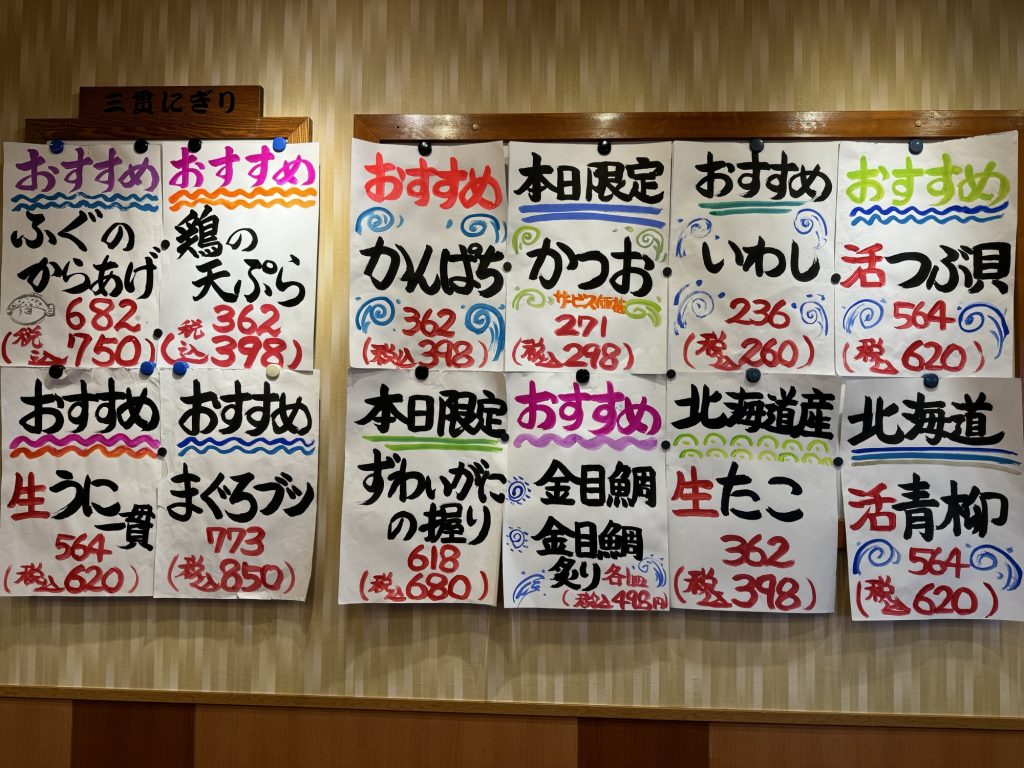 三貫にぎり
おすすめ
ふぐの
からあげ
682
(税込750)
おすすめ
鶏の
天ぷら
362
(税込398)
おすすめ
かんぱち
362
(税込398)
本日限定
かつお
サービス価格
271
(税込298)
おすすめ
いわし
236
(税込260)
おすすめ
活つぶ貝
564
(税込620)
おすすめ
生うに
一貫
564
(税込620)
おすすめ
まぐろブツ
773
(税込850)
本日限定
ずわいがに
の握り
618
(税込680)
おすすめ
金目鯛
金目鯛
炙り各皿
(税込498円)
北海道産
生たこ
362
(税込398)
北海道
活青柳
564
(税込620)